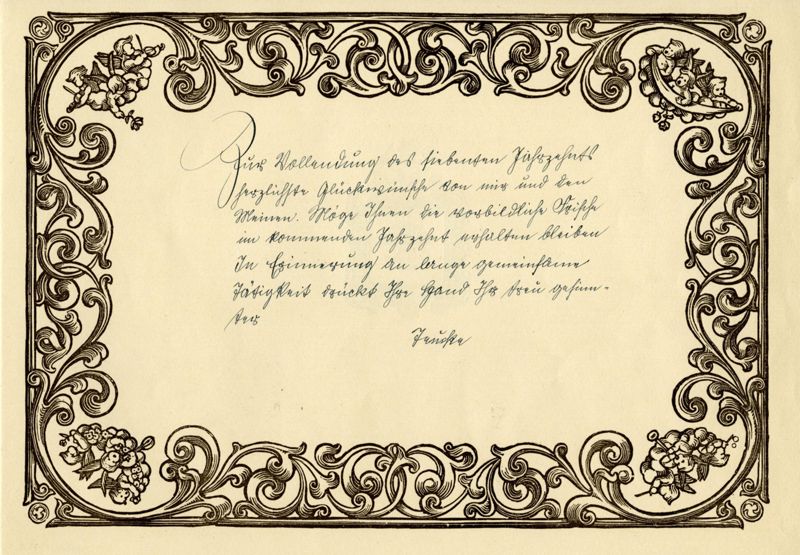 Zur Vollendung des siebenten Jahrzehnts
herzlichste Glückwünsche von mir und den
Meinen. Möge Ihnen die vorbildliche Frische
im kommenden Jahrzehnt erhalten bleiben
In Erinnerung an lange gemeinsame
Tätigkeit drückt Ihre Hand Ihr treu gesinn-
ter